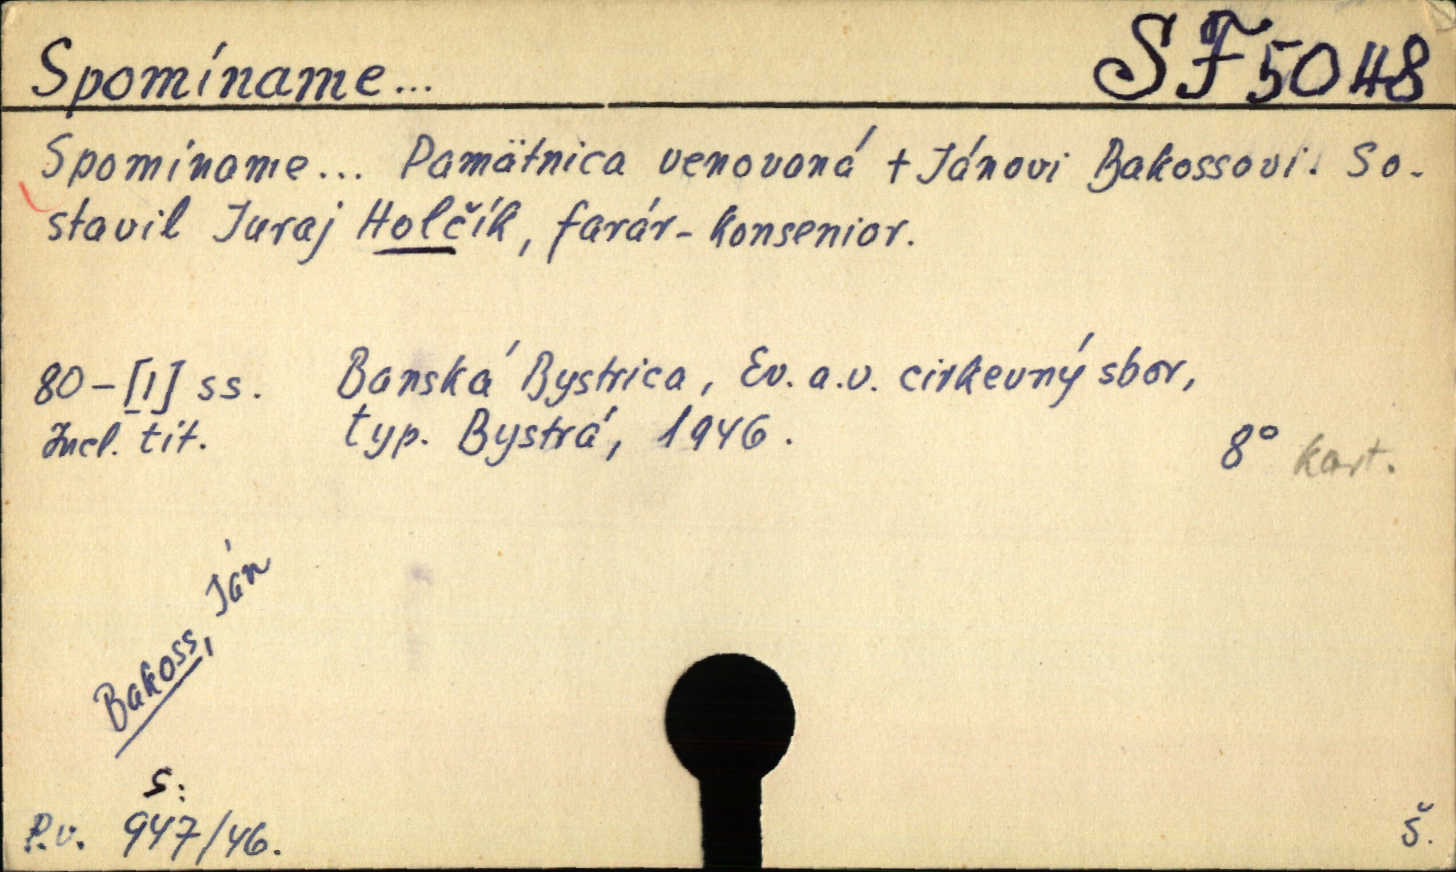 Spomíname... SF 5048
Spomíname... Pamätnica venovaná † Jánovi Bakossovi. So-
stavil Juraj Holčík, farár-konsenior.
80-[1] ss. Banská Bystrica, Ev. a.v. cirkevný sbor,
Incl. tit. typ. Bystrá, 1946. 8° kart.
Bakoss, Ján
S:
P.v. 947/46. Š.